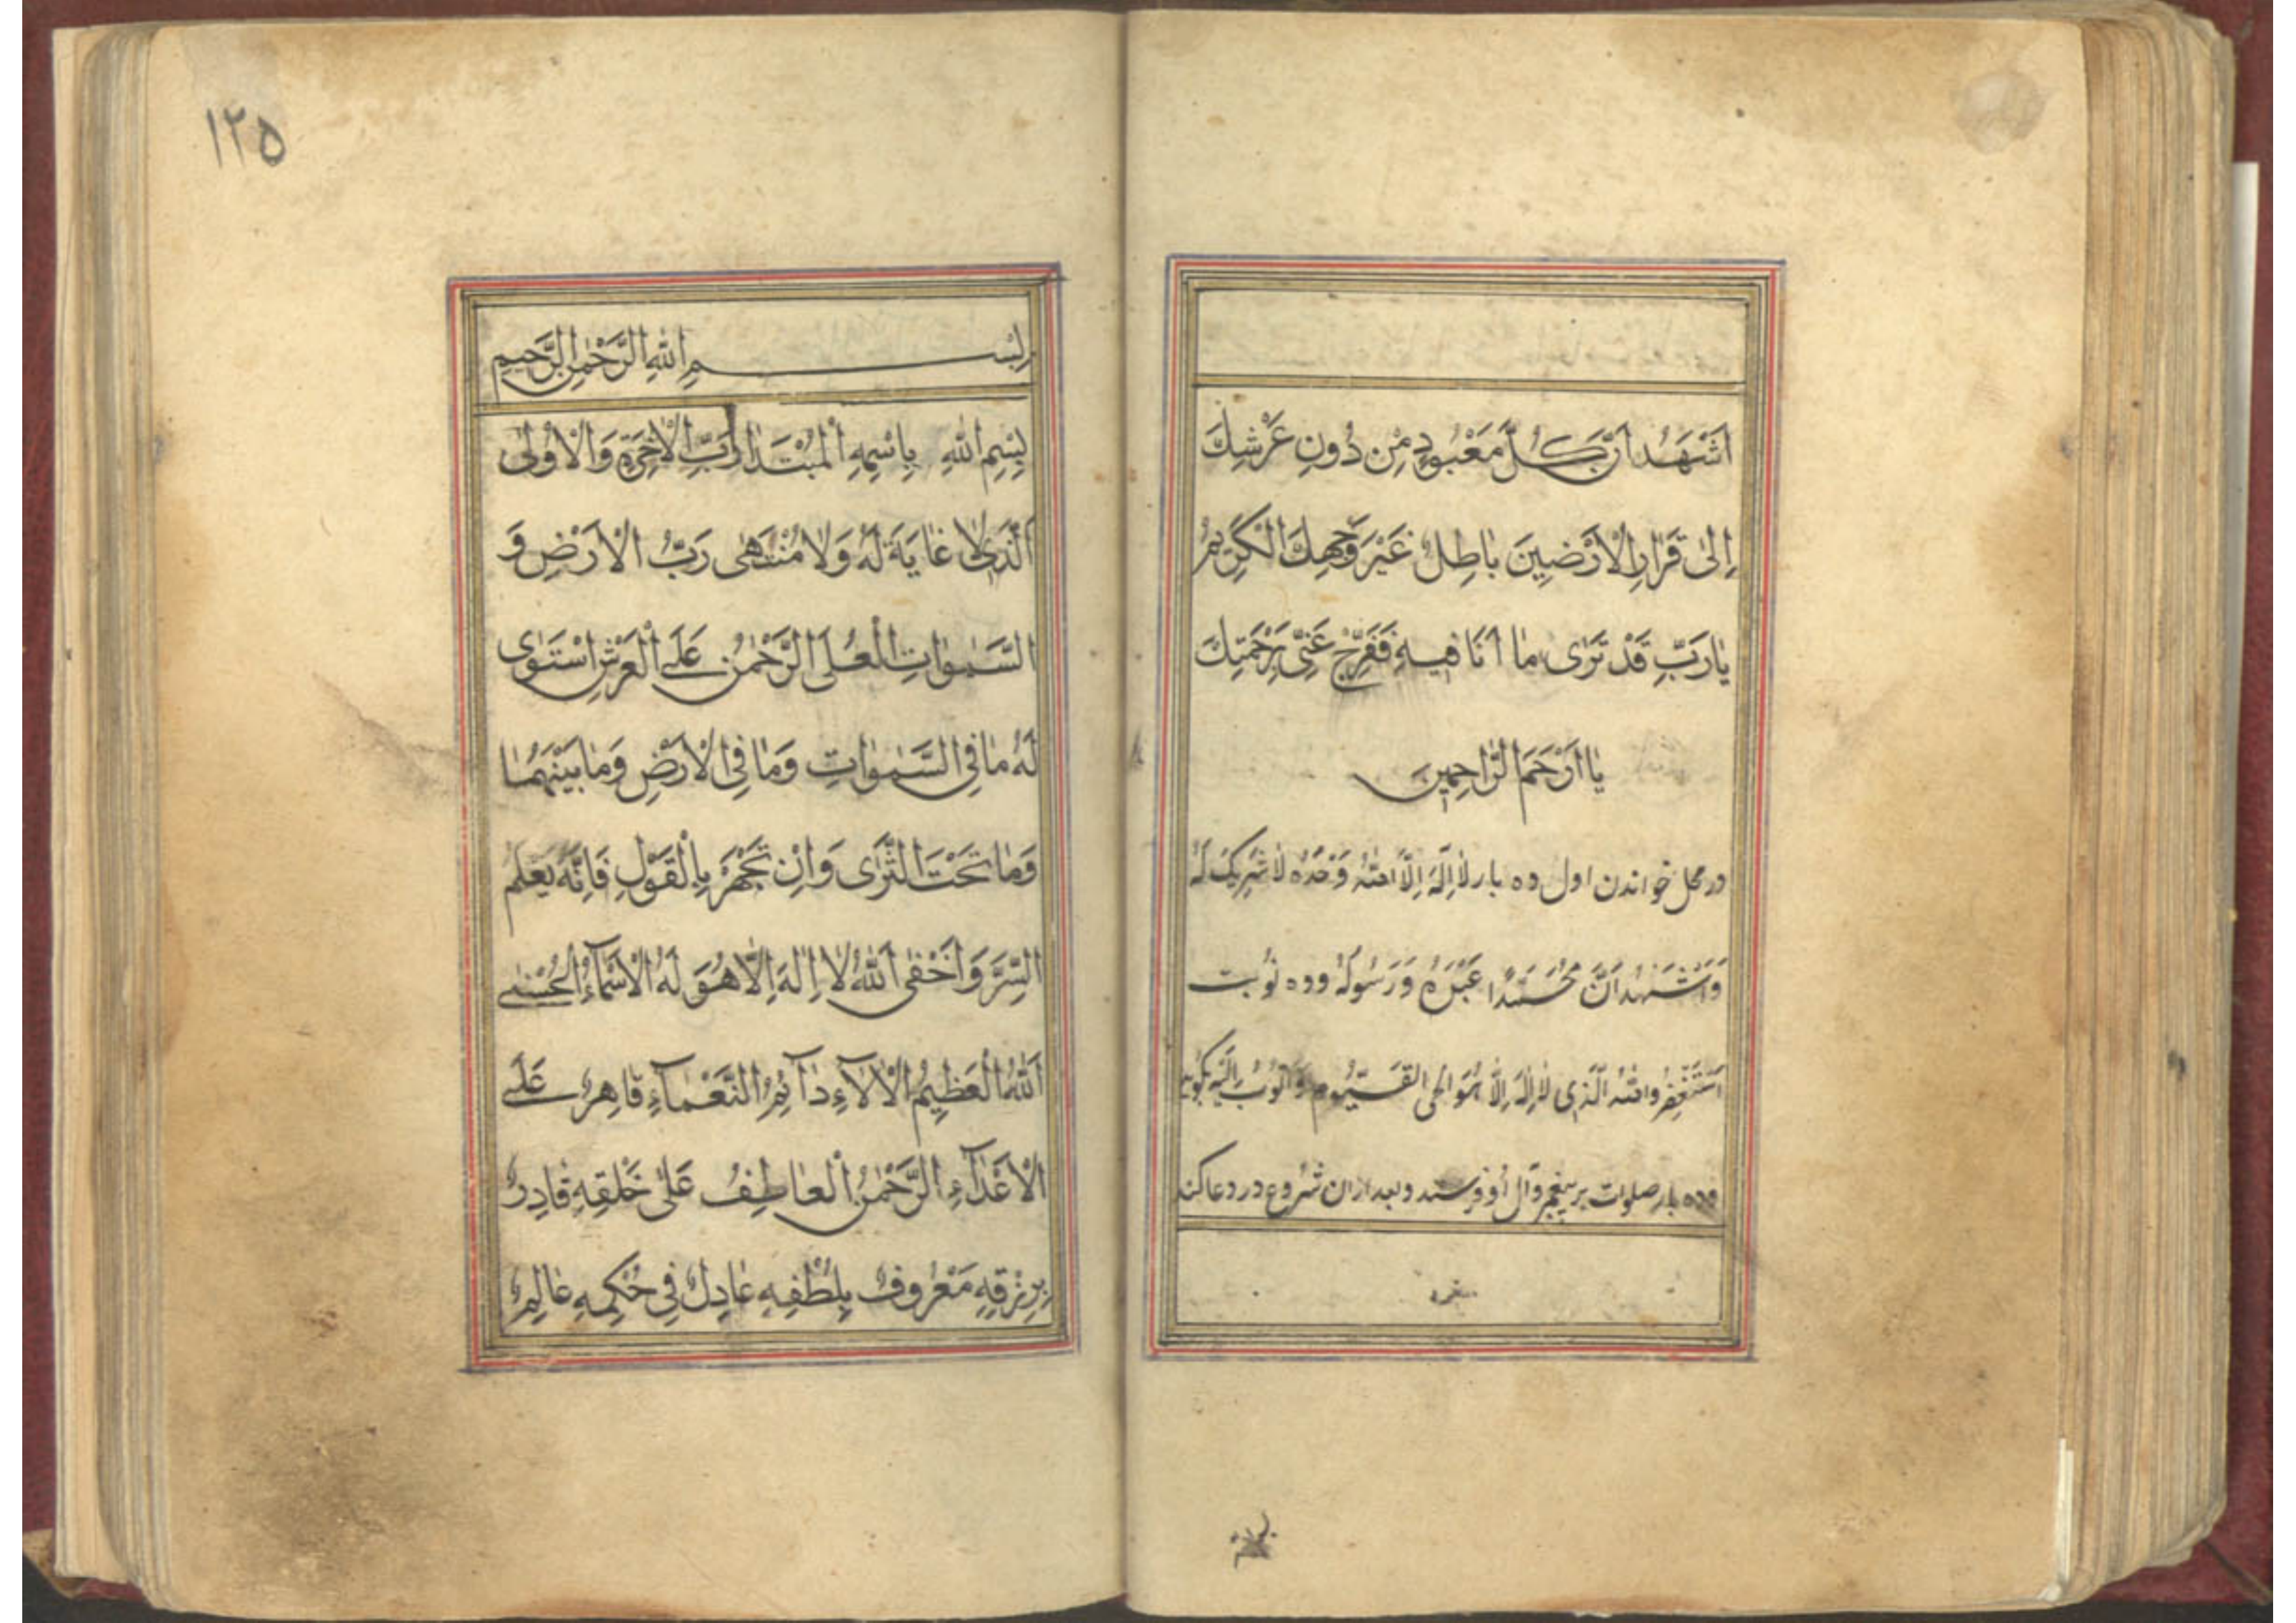 اَشْهَدُ اَنَّ كُلَّ مَعْبُودٍ مِنْ دُونِ عَرْشِكَ
اِلىٰ قَرٰارِ الْاَرَضٖينَ بٰاطِلٌ غَيْرَ وَجْهِكَ الْكَرٖيمِ
يٰا رَبِّ قَدْ تَرٰى مٰا اَنَا فٖيهِ فَفَرِّجْ عَنّٖى بِرَحْمَتِكَ
يٰا اَرْحَمَ الرّٰاحِمٖينَ
در محل خواندن اول ده بار لٰا اِلٰهَ اِلَّا اللهُ وَحْدَهُ لٰا شَرٖيكَ لَهُ
وَاَشْهَدُ اَنَّ مُحَمَّدًا عَبْدُهُ وَرَسُولُهُ وده نوبت
اَسْتَغْفِرُ اللهَ الَّذٖى لٰا اِلٰهَ اِلَّا هُوَ الحى القَيُّوم وَاَتُوبُ اِلَيْهِ بگويد
وده بار صلوات بر پيغمبر وآل او فرستد وبعد ازان شروع در دعا كند
١٢٥
بِسْمِ اللهِ الرَّحْمٰنِ الرَّحٖيمِ
بِسْمِ اللهِ بِاسْمِهِ الْمُبْتَدَا رَبِّ الْاٰخِرَةِ وَالْاُولىٰ
اَلَّذٖى لٰا غٰايَةَ لَهُ وَلٰا مُنْتَهٰى رَبُّ الْاَرْضِ وَ
السَّمٰوٰاتِ الْعُلىَ الرَّحْمٰنُ عَلَى الْعَرْشِ اسْتَوٰى
لَهُ مٰا فِى السَّمٰوٰاتِ وَمٰا فِى الْاَرْضِ وَمٰا بَيْنَهُمٰا
وَمٰا تَحْتَ الثَّرٰى وَاِنْ تَجْهَرْ بِالْقَوْلِ فَاِنَّهُ يَعْلَمُ
السِّرَّ وَاَخْفٰى اَللهُ لٰا اِلٰهَ اِلَّا هُوَ لَهُ الْاَسْمٰآءُ الْحُسْنٰى
اَللهُ الْعَظٖيمُ الْاٰلٰآءِ دٰآئِمُ النَّعْمٰآءِ قٰاهِرٌ عَلَى
الْاَعْدٰآءِ الرَّحْمٰنُ الْعٰاطِفُ عَلىٰ خَلْقِهِ قٰادِرٌ
بِرِزْقِهِ مَعْرُوفٌ بِلُطْفِهِ عٰادِلٌ فٖى حُكْمِهِ عٰالِمٌ